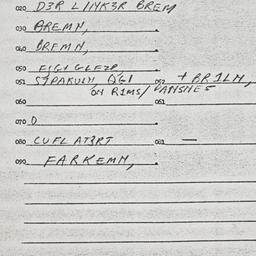 020 D3R L/NK3R BREM
030 AREMN,
040 BREMN,
050 FIGI GLEZP
051 STPAKULN QGI 052 + BR1LN,
ON R1MS/VANSNES
060 061
070 O
080 CUFL AT3RT 081 —
090 FARKEMN,